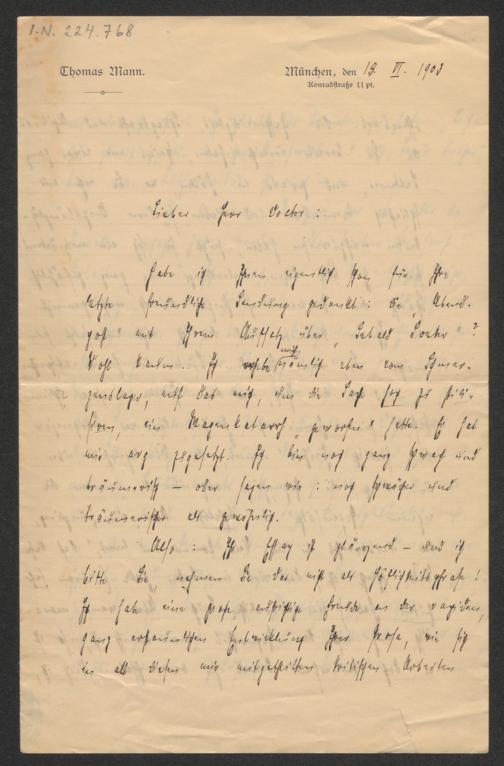 I.N. 224.768
Thomas Mann.
München, den 19. VI. 1903
Konradstraße 11 pt.
Lieber Herr Doctor:
habe ich Ihnen eigentlich schon für Ihre
letzte freundliche Sendung gedankt: die „Abend-
post" mit Ihrem Aufsatz über
Wohl kaum. Ich erhebe mich nämlich eben vom Schmer-
zenslager, auf das mich, um die Sache zu
ein Magenkatarrh „geworfen" hatte. Er hat
mir arg zugesetzt. Ich bin noch ganz schwach und
träumerisch – oder sagen wir: noch schwächer und
träumerischer als gewöhnlich.
Also: Ihr Essay ist glänzend – und ich
bitte Sie, nehmen Sie das nicht als Höflichkeitsphrase!
Ich habe eine große, aufrichtige Freude an der rapiden,
ganz erstaunlichen Entwicklung Ihrer Prosa, wie sie
in all diesen mir mitgetheilten kritischen Arbeiten